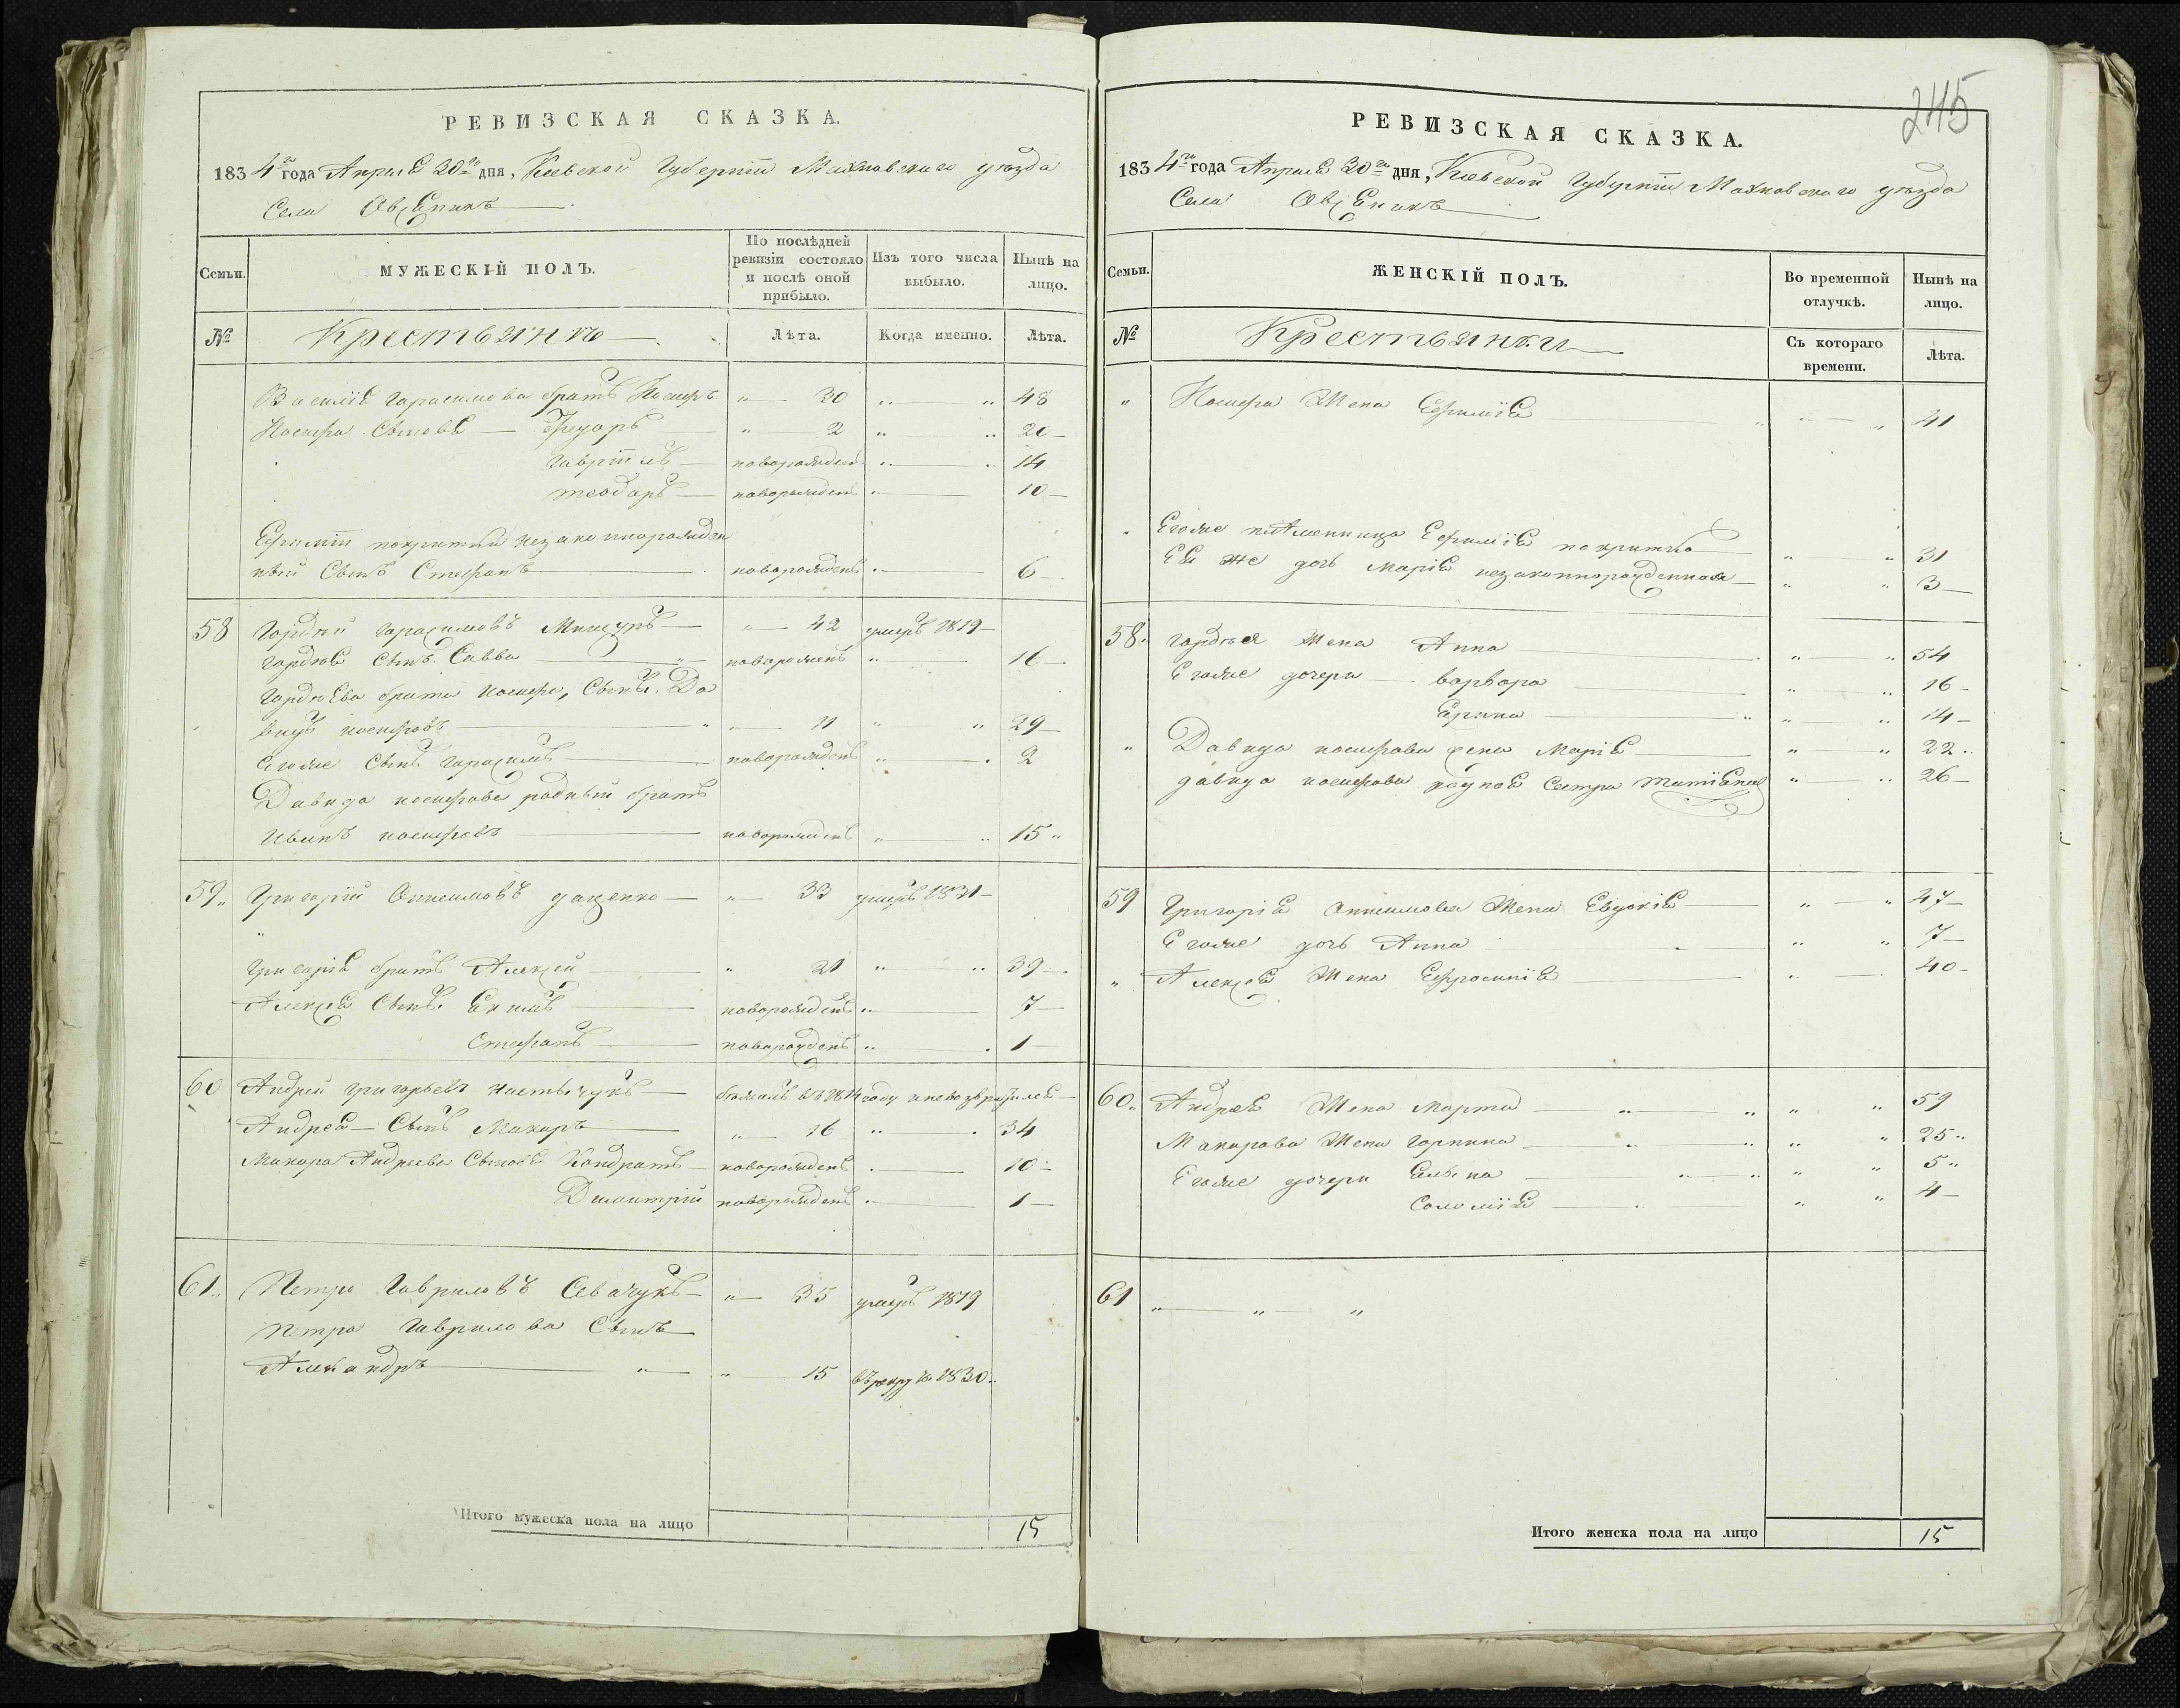 РЕВИЗСКАЯ СКАЗКА.
1834го года Апреля 30го дня, Киевской Губернiи Махновскаго уѣзда
Села Овсяникъ
Семьи.
МУЖЕСКIЙ ПОЛЪ.
По послѣдней ревизiи состояло и послѣ оной прибыло.
Изъ того числа выбыло.
Нынѣ на лицо.
№
Крестьянъ
Лѣта.
Когда именно.
Лѣта.
Василiя Гарасимова братъ „ 30 „ „ 48
Сыновья „ 2 „ „ 20
Гаврiилъ новорожденъ „ „ 14
теодоръ новорожденъ „ 10
Ефимiи покритки незаконнорожден
ный Сынъ Стефанъ новорожденъ „ 6
58 Гордѣй Гарасимовъ „ 42 умеръ 1819
Гордѣя сынъ Савва новорожденъ „ 16
Гордѣева брата Сынъ Да
видъ „ 11 „ „ 29
Егоже Сынъ Гарасимъ новорожденъ „ 2
Давида родный братъ
Иванъ новорожденъ „ „ 15
59 Григорiй Онисимовъ даценко „ 33 умеръ 1831
Григорiя братъ Алексей „ 21 „ „ 39
Алексея Сынъ Якимъ новорожденъ „ 7
Стефанъ новорожденъ „ 1
60 Андрей григорьевъ бѣжалъ въ году и невозвратился
Андрея Сынъ Макаръ „ 16 „ 34
Макара Андреева Сыновья Кондратъ новорожденъ 10
Димитрiй новорожденъ „ 1
61 Петро Гавриловъ Савчукъ „ 35 умеръ 1819
Петра Гаврилова Сынъ
Александръ „ „ 15 1830
Итого мужеска пола на лицо 15
245
РЕВИЗСКАЯ СКАЗКА.
1834го года Апреля 30го дня, Киевской Губернiи Махновскаго уѣзда
Села Овсяникъ
Семьи.
ЖЕНСКIЙ ПОЛЪ.
Во временной отлучкѣ.
Нынѣ на лицо.
№
Крестьянки
Съ котораго времени.
Лѣта.
„ Жена Ефимiя „ „ 41
Егоже племенница Ефимiя покритка „ „ 31
Ея же дочь Марiя незаконнорожденная „ „ 3
58 Гордѣя Жена Анна „ „ 54
Егоже дочери варвара „ „ 16
Ерина „ „ „ 14
„ Давида жена Марiя „ „ 22
давида родная Сестра Татiяна „ „ 26
59 Григорiя Онисимова Жена Евдокiя „ „ 47
Егоже дочь Анна „ „ 7
„ Алексея Жена Ефросинiя „ 40
60 Андрея Жена Марта „ „ „ „ 59
Макарова Жена Горпина „ „ „ „ 25
Егоже дочери „ „ „ „ 5
Соломiя „ „ 4
61 „ „ „
Итого женска пола на лицо 15